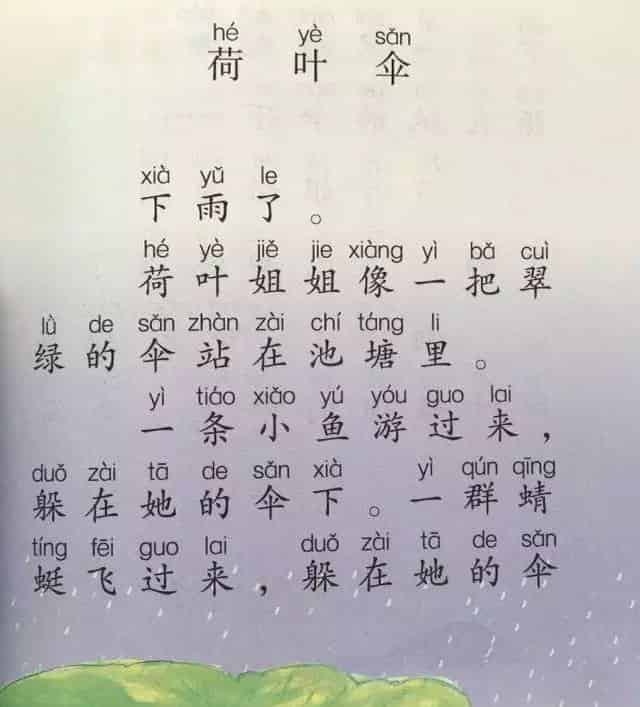 hé yè sǎn
荷叶伞
xià yǔ le
下雨了。
hé yè jiě jie xiàng yì bǎ cuì
荷叶姐姐像一把翠
lǜ de sǎn zhàn zài chí táng li
绿的伞站在池塘里。
yì tiáo xiǎo yú yóu guo lai
一条小鱼游过来，
duǒ zài tā de sǎn xià yì qún qīng
躲在她的伞下。一群蜻
tíng fēi guo lai duǒ zài tā de sǎn
蜓飞过来，躲在她的伞